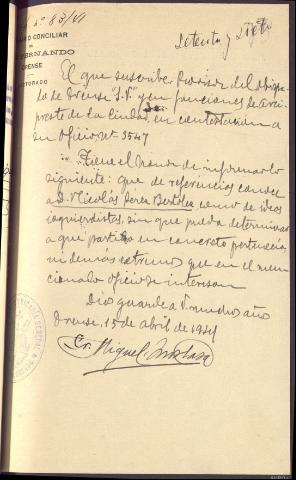 nº 83/VI
CONCILIAR
FERNANDO
ORENSE
Setenta y siete
El que suscribe Provisor del obispa
do de Orense "S.P." y en funciones de arci
preste de la Ciudad, en contestación a
su oficio Nº 3547
Tiene el honor de informarle lo
siguiente: que de referencias conoce
a D. Nicolás Pérez como de ideas
izquierdistas, sin que pueda determinar
a qué partido en concreto pertenecía
ni demás extremos que en el men
cionado oficio se interesan
Dios guarde a V. muchos años
Orense, 15 de abril de 1941
Miguel